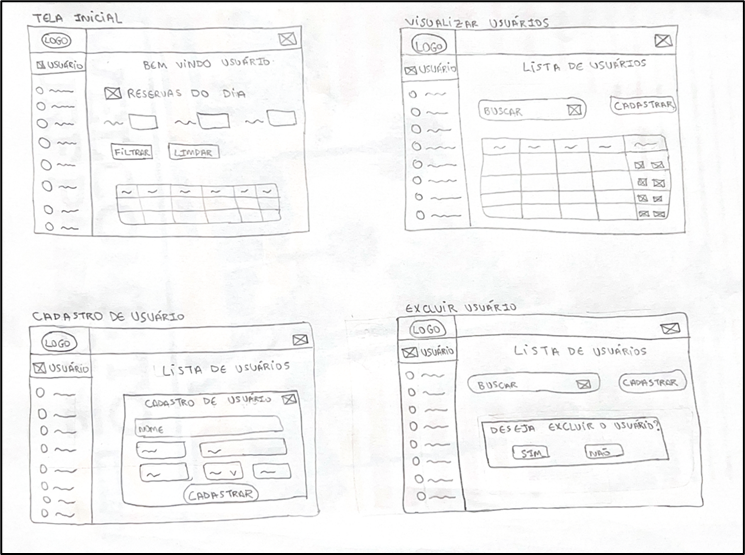 TELA INICIAL
LOGO
USUÁRIO
BEM VINDO USUÁRIO
RESERVAS DO DIA
FILTRAR
LIMPAR
VISUALIZAR USUÁRIOS
LOGO
USUÁRIO
LISTA DE USUÁRIOS
BUSCAR
CADASTRAR
CADASTRO DE USUÁRIO
LOGO
USUÁRIO
LISTA DE USUÁRIOS
CADASTRO DE USUÁRIO
NOME
CADASTRAR
EXCLUIR USUÁRIO
LOGO
USUÁRIO
LISTA DE USUÁRIOS
BUSCAR
CADASTRAR
DESEJA EXCLUIR O USUÁRIO?
SIM
NÃO